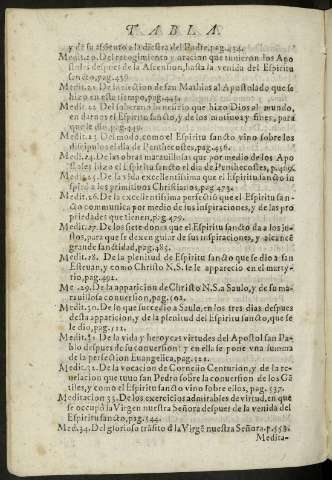 TABLA.
y de su assiento a la diestra del Padre, pag. 434.
Medit. 20. Del recogimiento y oracion que tuuieron los Apo
stoles despues de la Ascension, hasta la venida del Espiritu
sancto, pag. 439.
Medit. 21. De la eleccion de san Mathias al Apostolado que se
hizo en este tiempo, pag. 443.
Medit. 22. Del soberano beneficio que hizo Dios al mundo,
en darnos el Espiritu sancto, y de los motiuos y fines, para
que le dio, pag. 449.
Medit. 23. Del modo como el Espiritu sancto vino sobre los
discipulos el dia de Penthecostes, pag. 456.
Medi. 24. De las obras marauillosas que por medio de los Apo
stoles hizo el Espiritu sancto el dia de Penthecostes, p. 466.
Medit. 25. De la vida excelentissima que el Espiritu sancto in
spirò a los primitiuos Christianos, pag. 473.
Medit. 26. De la excelentissima perfectiō que el Espiritu san-
cto communica por medio de sus inspiraciones, y de las pro
priedades que tienen, pag. 479.
Medit. 27. De los siete dones que el Espiritu sancto da a los ju-
stos, para que se dexen guiar de sus inspiraciones, y alcancē
grande sanctidad, pag. 485.
Medit. 28. De la plenitud de Espiritu sancto que se dio a san
Esteuan, y como Christo N.S. se le apparecio en el marty-
rio, pag. 492.
Me. 29. De la apparicion de Christo N.S. a Saulo, y de su ma-
rauillosa conuersion, pag. 502.
Medit. 30. De lo que succedio a Saulo, en los tres dias despues
desta apparicion, y de la plenitud del Espiritu sancto, que se
le dio, pag. 511.
Medit. 31. De la vida y heroycas virtudes del Apostol san Pa-
blo despues de su conuersion: y en ella se pone vna summa
de la perfection Euangelica, pag. 521.
Medit. 32. De la vocacion de Cornelio Centurion, y de la re-
uelacion que tuuo san Pedro sobre la conuersion de los Gē
tiles, y como el Espiritu sancto vino sobre ellos, pag. 537.
Meditacion 33. De los exercicios admirables de virtud, en que
se occupò la Virgen nuestra Señora despues de la venida del
Espiritu sancto, pag. 544.
Med. 34. Del glorioso trāsito d la Virgē nuestra Señora. p. 558.
Medita-